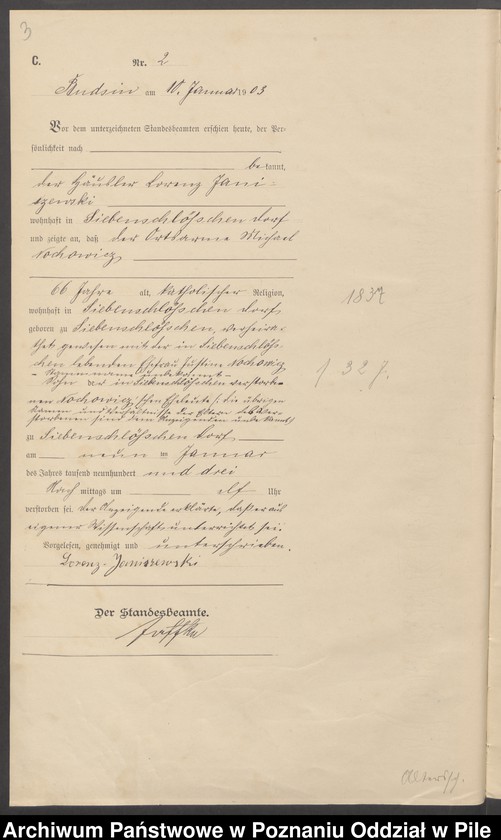 3
C.
Nr. 2
Budsin am 10. Januar 1903
Vor dem unterzeichneten Standesbeamten erschien heute, der Per-
sönlichkeit nach
bekannt,
der Häusler Lorenz Jani-
szewski
wohnhaft in Siebenschlößchen Dorf
und zeigte an, daß der Ortsarme Michael
Nochowicz
66 Jahre alt, katholischer Religion,
wohnhaft in Siebenschlößchen Dorf,
geboren zu Siebenschlößchen, verheira-
thet gewesen mit der in Siebenschlöß-
chen lebenden Ehefrau Justine Nochowicz
Sohn der in Siebenschlößchen verstorbe-
nen Nochowicz'schen Eheleute /: die übrigen
Namen und Verhältnisse der Eltern des Ver-
storbenen sind dem Anzeigenden unbekannt
zu Siebenschlößchen Dorf
am neun ten Januar
des Jahres tausend neunhundert und drei
Nach mittags um elf Uhr
verstorben sei. Der Anzeigende erklärte, daß er aus
eigener Wissenschaft unterrichtet sei.
Vorgelesen, genehmigt und unterschrieben.
Lorenz Janiszewski
Der Standesbeamte.
Jaffke
1837
/ 327.
Altersch.
Archiwum Państwowe w Poznaniu Oddział w Pile